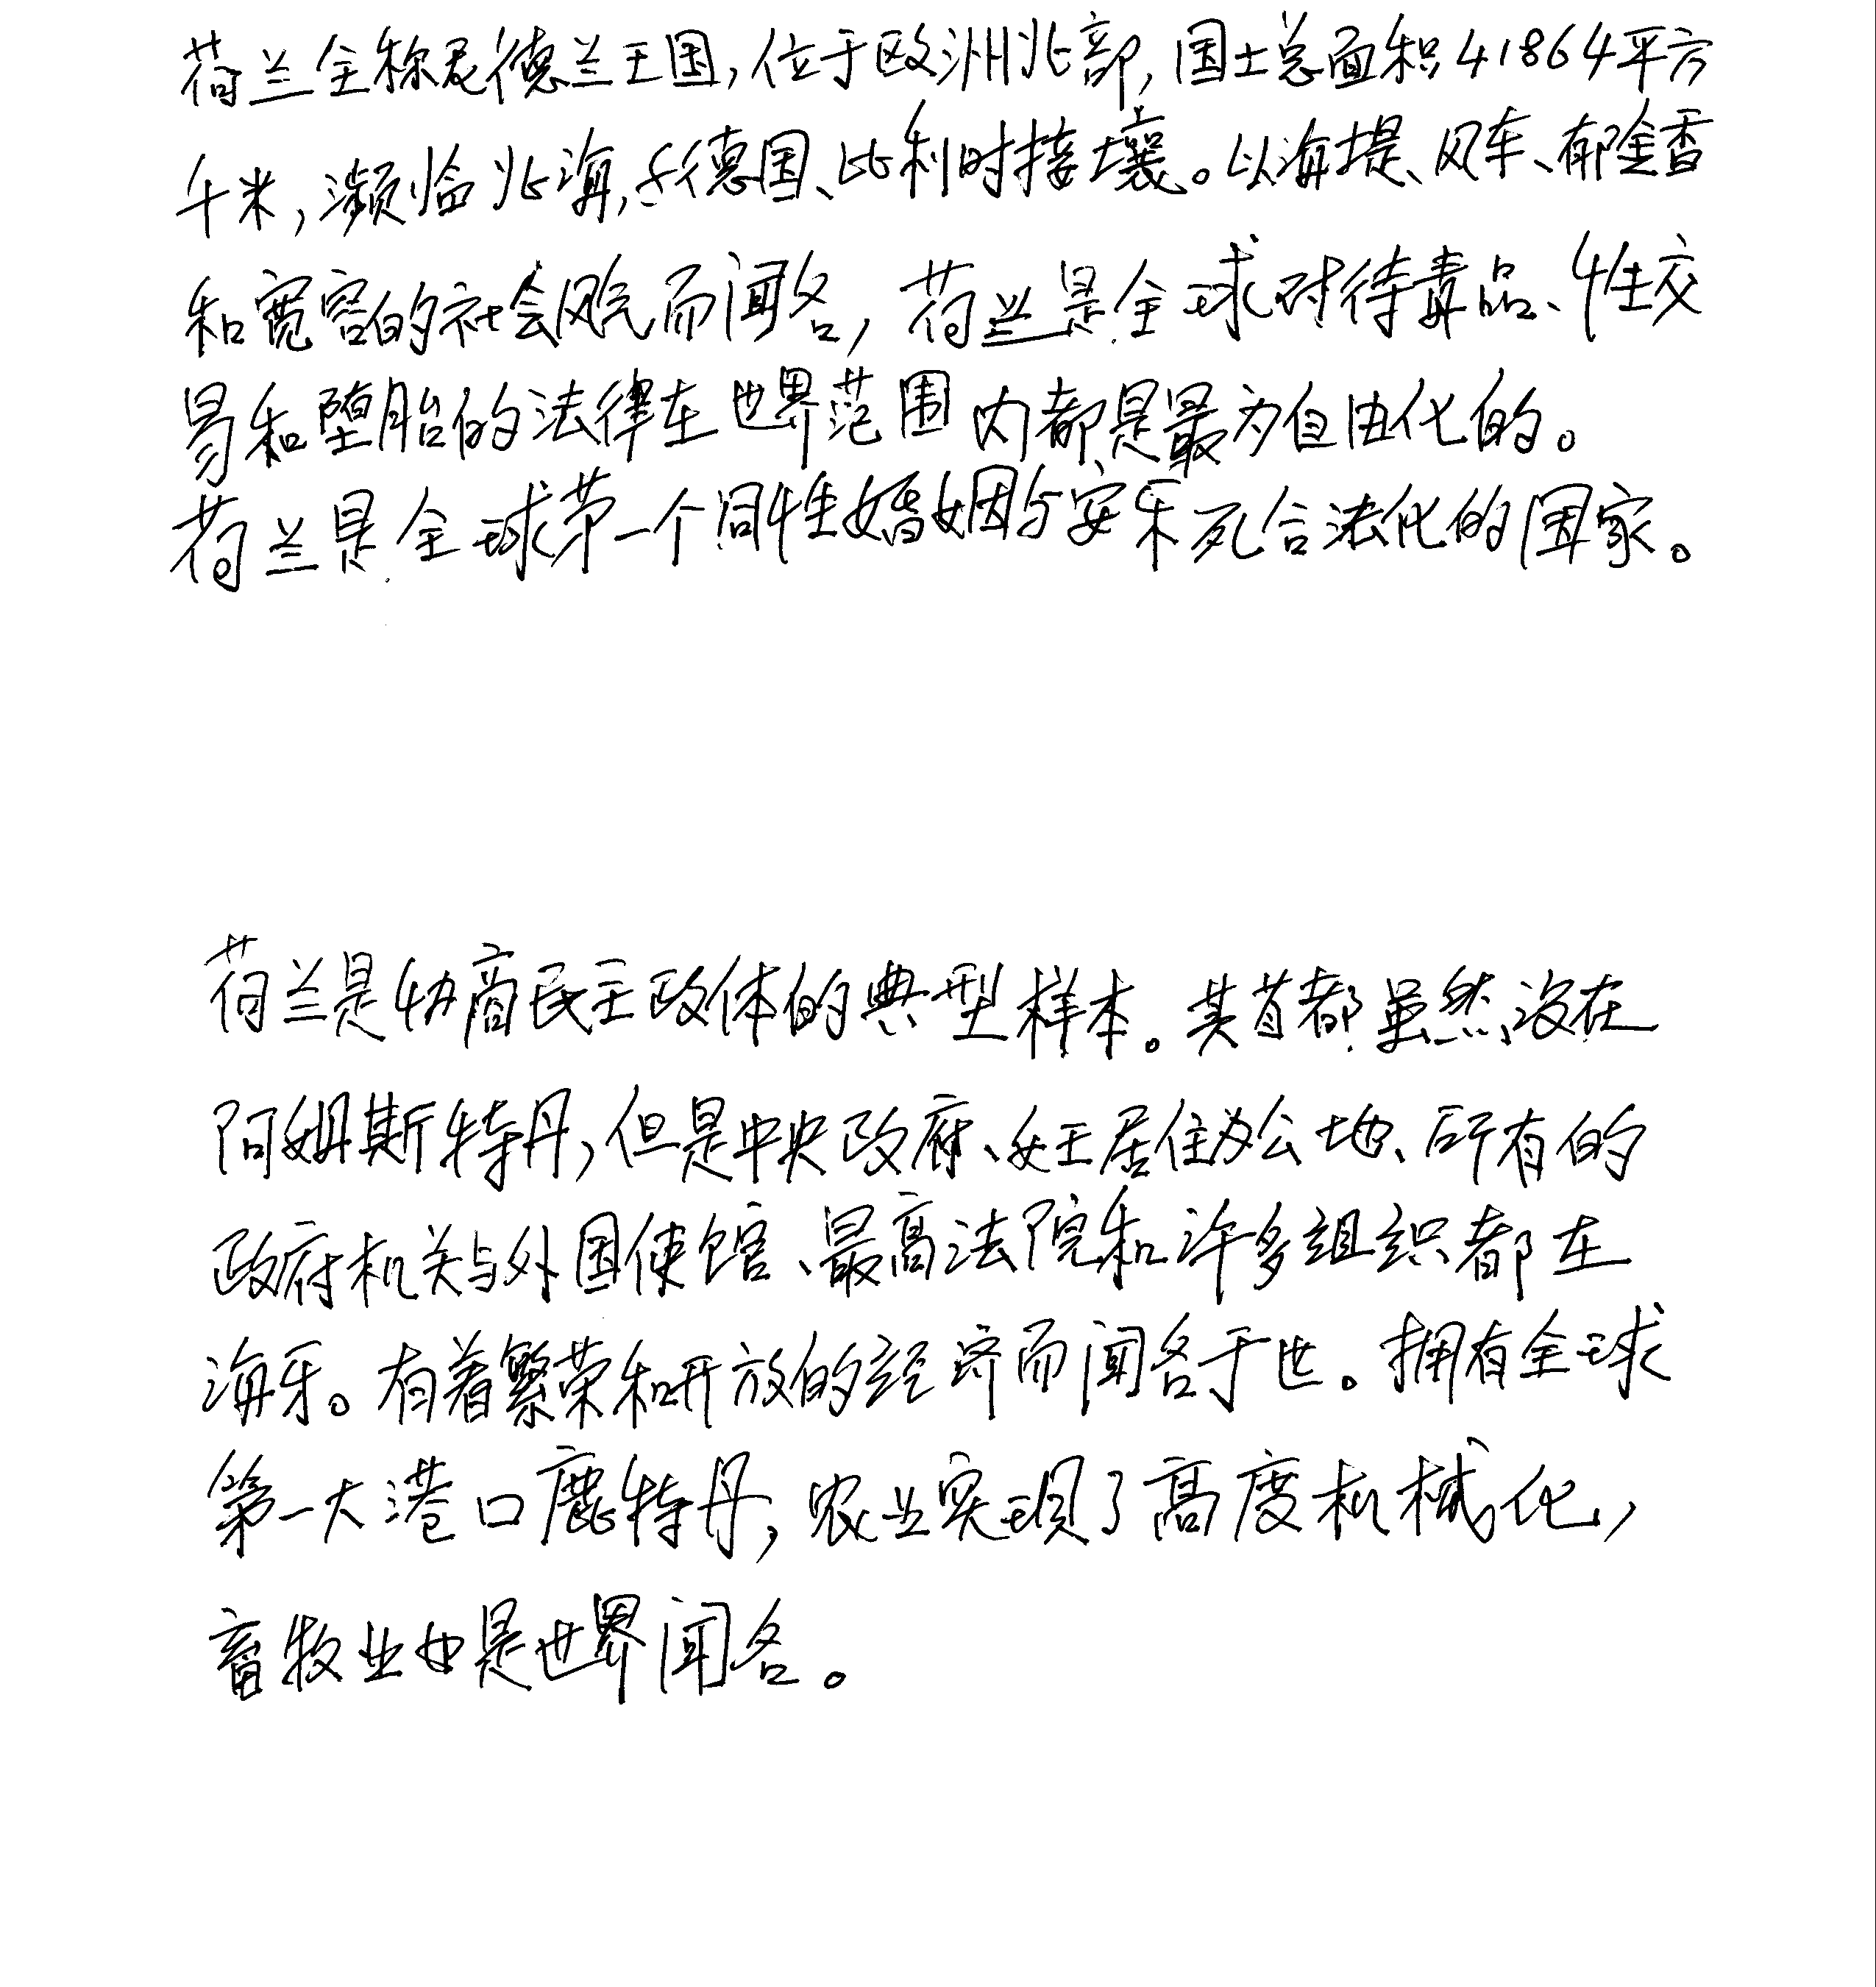 荷兰全称尼德兰王国,位于欧洲北部,国土总面积41864平方
千米,濒临北海,与德国、比利时接壤。以海堤、风车、郁金香
和宽容的社会风气而闻名,荷兰是全球对待毒品、性交
易和堕胎的法律在世界范围内都是最为自由化的。
荷兰是全球第一个同性婚姻与安乐死合法化的国家。
荷兰是协商民主政体的典型样本。其首都虽然设在
阿姆斯特丹,但是中央政府、女王居住办公地、所有的
政府机关与外国使馆、最高法院和许多组织都在
海牙。有着繁荣和开放的经济而闻名于世。拥有全球
第一大港口鹿特丹,农业实现了高度机械化,
畜牧业也是世界闻名。